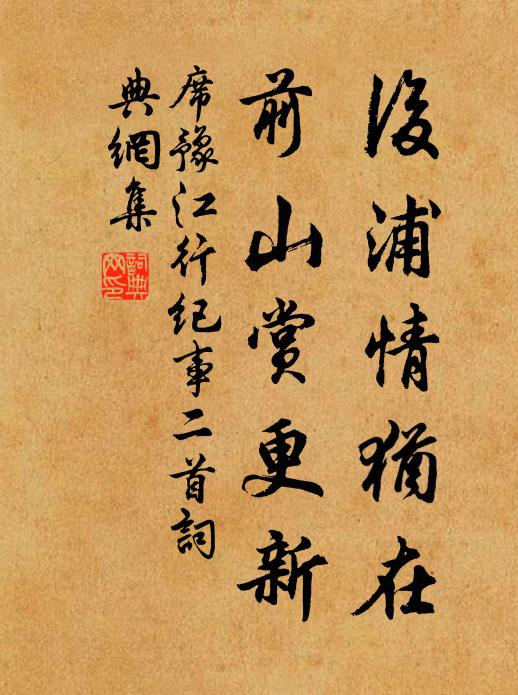 後浦情猶在
前山賞更新
席豫江行紀事二首詞
典網集
詞典網印